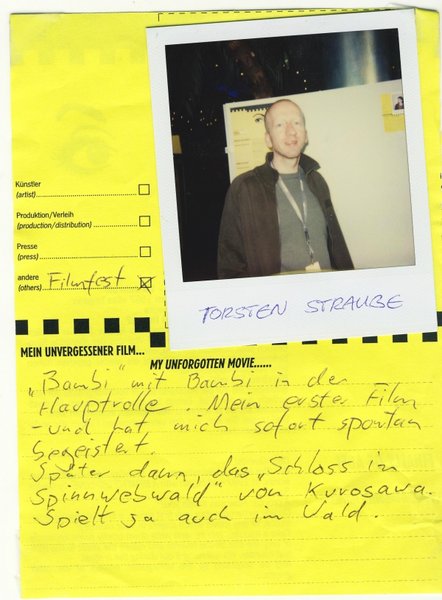 Künstler
(artist)
Produktion/Verleih
(production/distribution)
Presse
(press)
andere
(others) Filmfest
TORSTEN STRAUBE
MEIN UNVERGESSENER FILM...
MY UNFORGOTTEN MOVIE......
„Bambi" mit Bambi in der
Hauptrolle. Mein erster Film
- und hat mich sofort spontan
begeistert.
Später dann, das „Schloss im
Spinnwebwald" von Kurosawa.
Spielt ja auch im Wald.